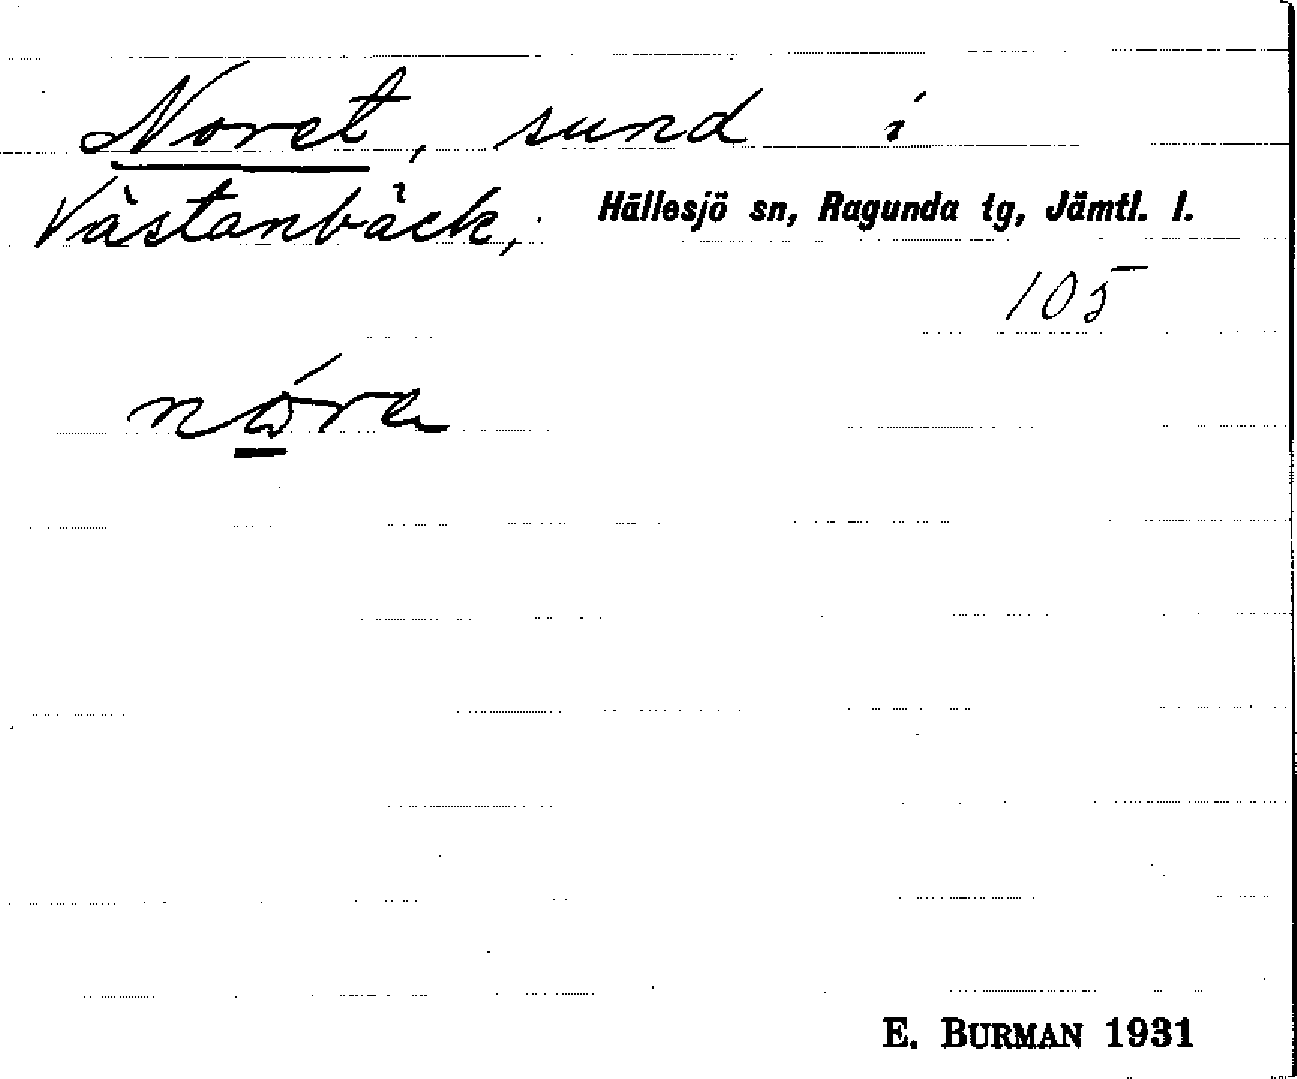 Noret, sund i
Västanbäck, Hällesjö sn, Ragunda tg, Jämtl. l.
105
nóra
E. BURMAN 1931